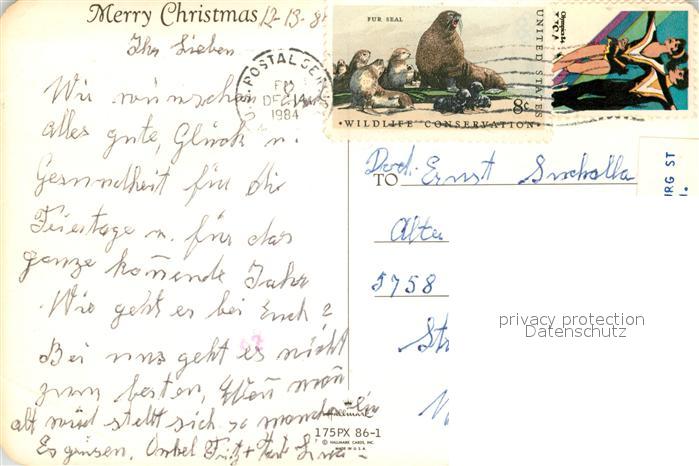 Merry Christmas 12-13-8
Ihr Lieben
Wir wünschen
alles gute, Glück u.
Gesundheit für die
Feiertage u. für das
ganze kom̄ende Jahr
Wie geht es bei Euch?
Bei uns geht es nicht
zum besten, Wen̄ man
alt wird stellt sich so manches ein
Es grüssen, Onkel Fritz +
POSTAL SERV
PM
DEC 14
1984
FUR SEAL
UNITED STATES
8c
WILDLIFE CONSERVATION
Olympics 84
TO Ernst
Alte
5758
URG ST
privacy protection
Datenschutz
Hallmark
175PX 86-1
© HALLMARK CARDS, INC.
MADE IN U.S.A.